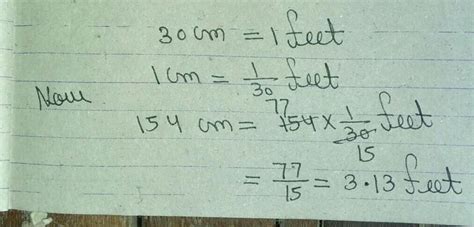 30 cm = 1 feet
1 cm = 1/30 feet
Now
154 cm = 77 154 × 1/30 feet
15
= 77/15 = 3.13 feet